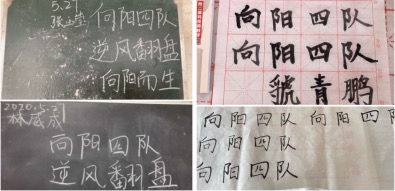 5.21
向阳四队
逆风翻盘
向阳而生
向阳四队
向阳四队
青鹏
2020.5.21
向阳四队
逆风翻盘
向阳四队 向阳四队
向阳四队
向阳四队